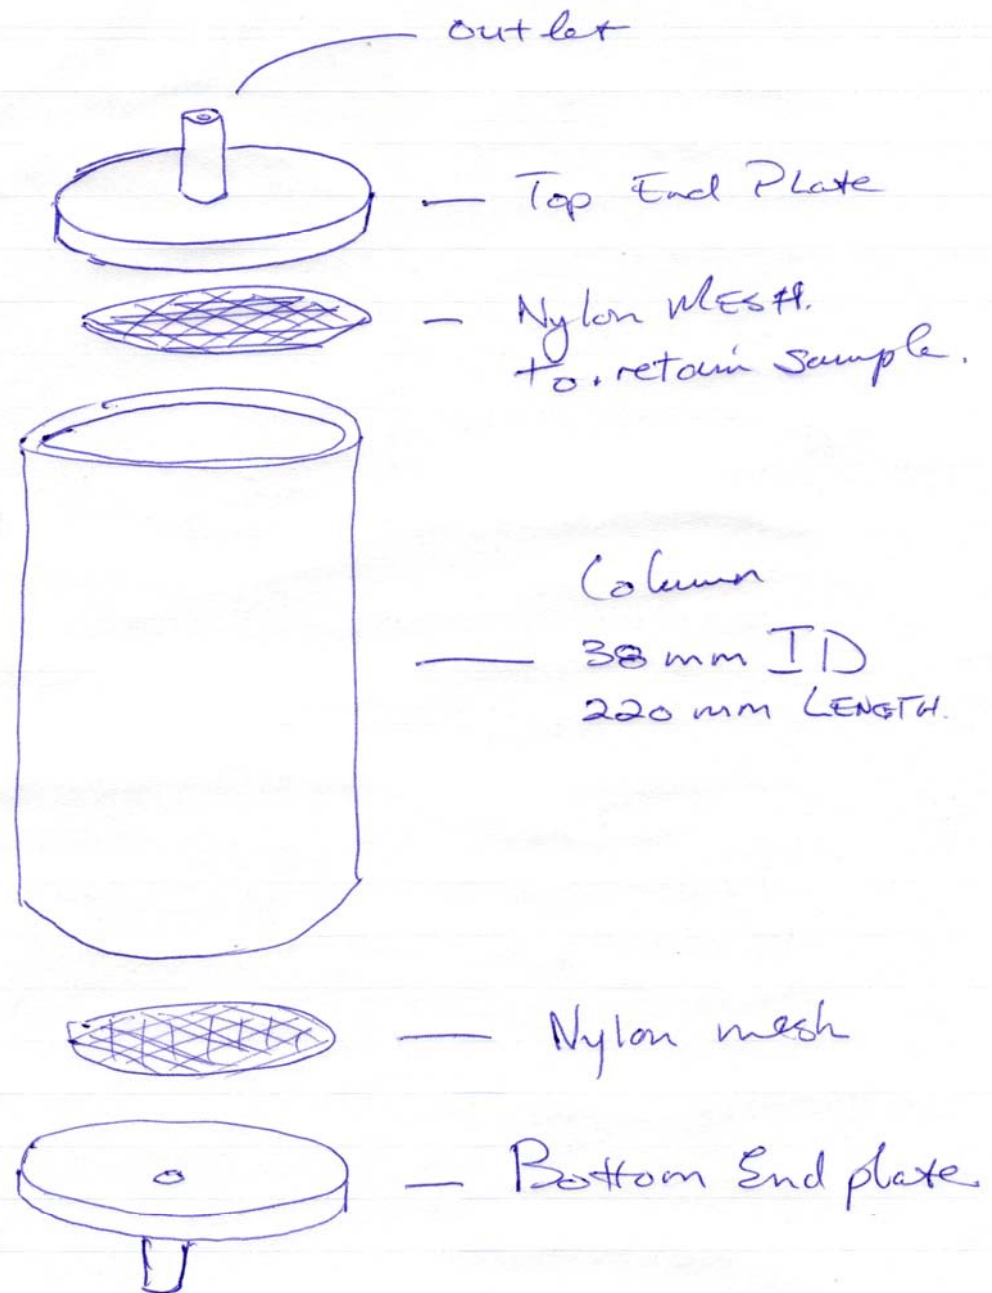 outlet
Top End Plate
Nylon MESH.
to. retain sample.
Column
38 mm ID
220 mm LENGTH.
Nylon mesh
Bottom End plate